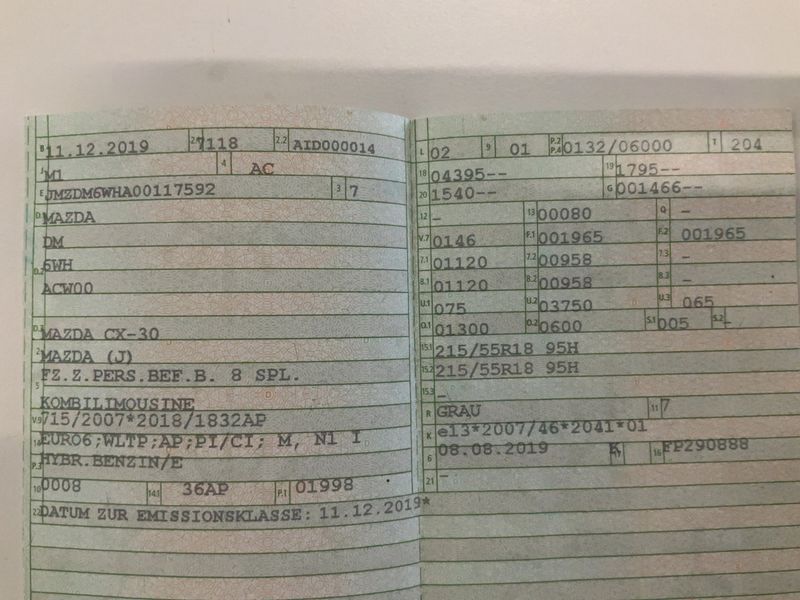 B 11.12.2019 2.1 7118 2.2 AID000014
J M1 4 AC
E JMZDM6WHA00117592 3 7
D.1 MAZDA
DM
D.2 6WH
ACW00
D.3 MAZDA CX-30
2 MAZDA (J)
5 FZ.Z.PERS.BEF.B. 8 SPL.
KOMBILIMOUSINE
V.9 715/2007*2018/1832AP
14 EURO6;WLTP;AP;PI/CI; M, N1 I
P.3 HYBR.BENZIN/E
10 0008 14.1 36AP P.1 01998
22 DATUM ZUR EMISSIONSKLASSE: 11.12.2019*
L 02 9 01 P.2 P.4 0132/06000 T 204
18 04395-- 19 1795--
20 1540-- G 001466--
12 - 13 00080 Q -
V.7 0146 F.1 001965 F.2 001965
7.1 01120 7.2 00958 7.3 -
8.1 01120 8.2 00958 8.3 -
U.1 075 U.2 03750 U.3 065
O.1 01300 O.2 0600 S.1 005 S.2 -
15.1 215/55R18 95H
15.2 215/55R18 95H
15.3 -
R GRAU 11 7
K e13*2007/46*2041*01
6 08.08.2019 17 K 16 FP290888
21 -